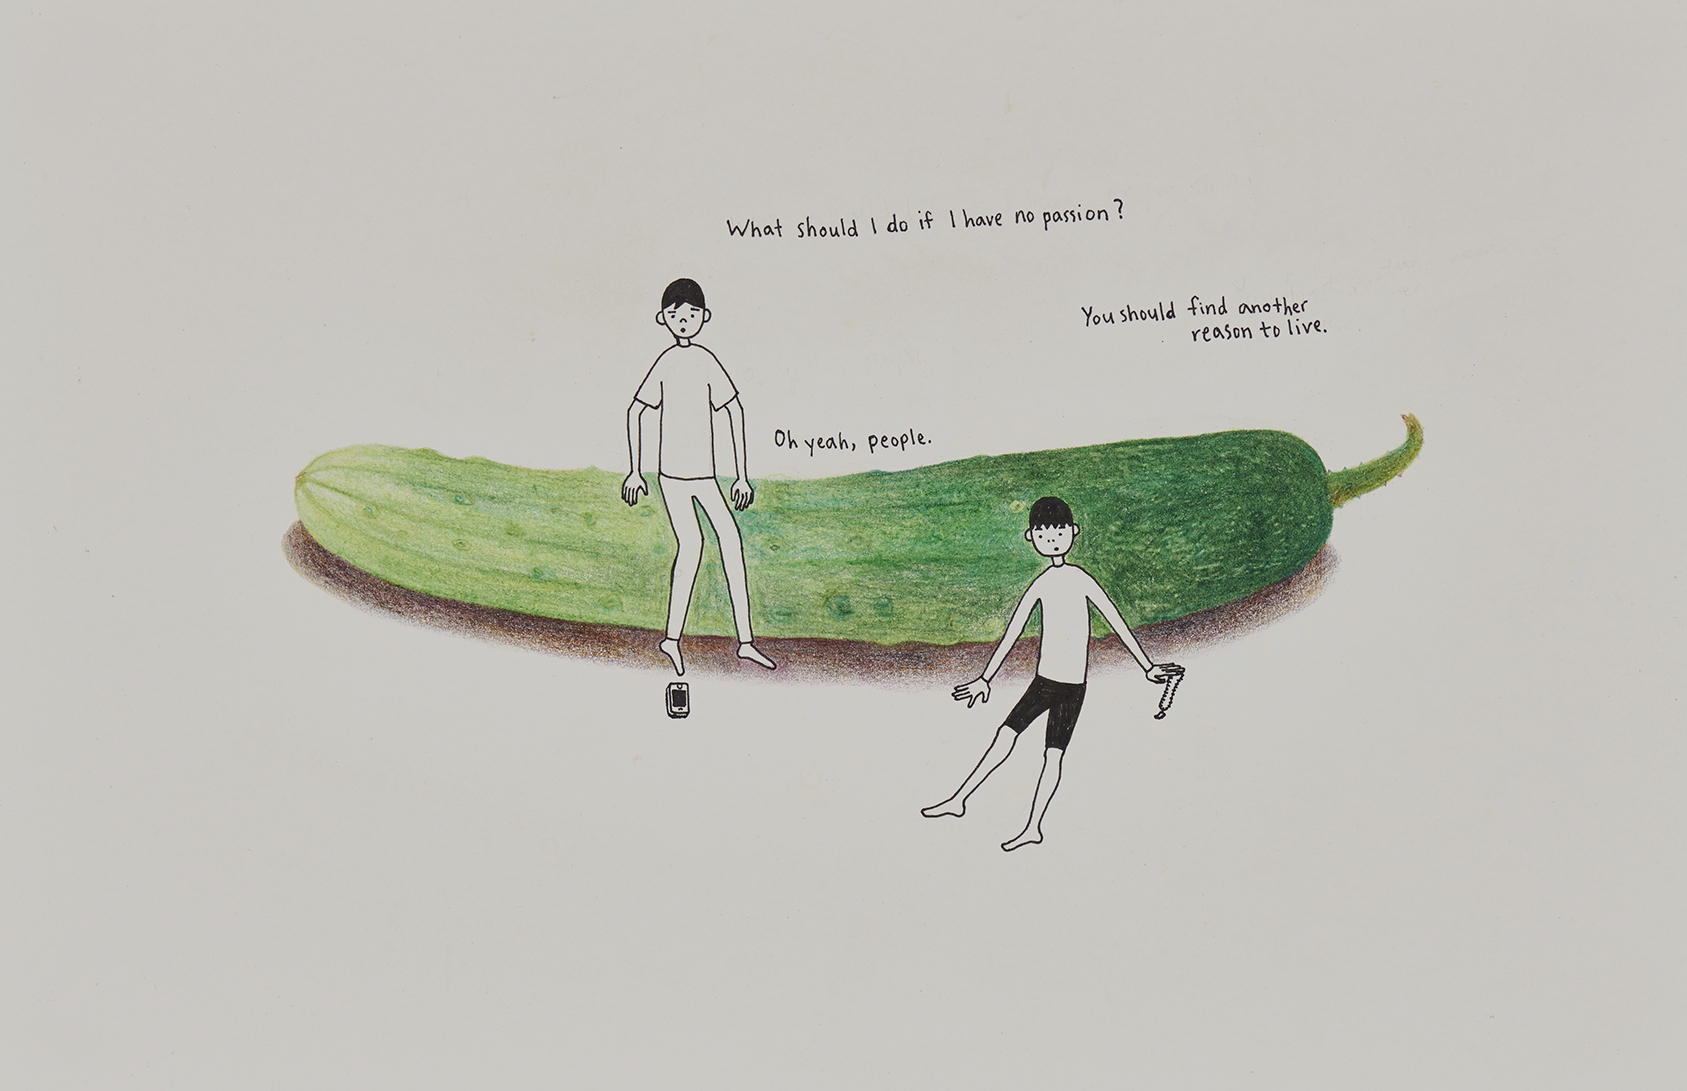 What should I do if I have no passion?
You should find another
reason to live.
Oh yeah, people.